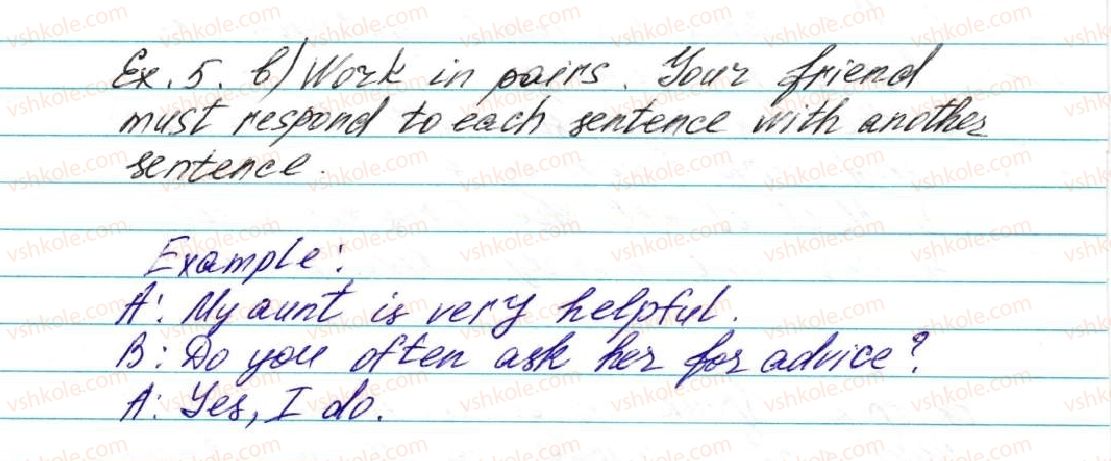 Ex. 5. b) Work in pairs. Your friend
must respond to each sentence with another
sentence.
Example:
A: My aunt is very helpful.
B: Do you often ask her for advice?
A: Yes, I do.